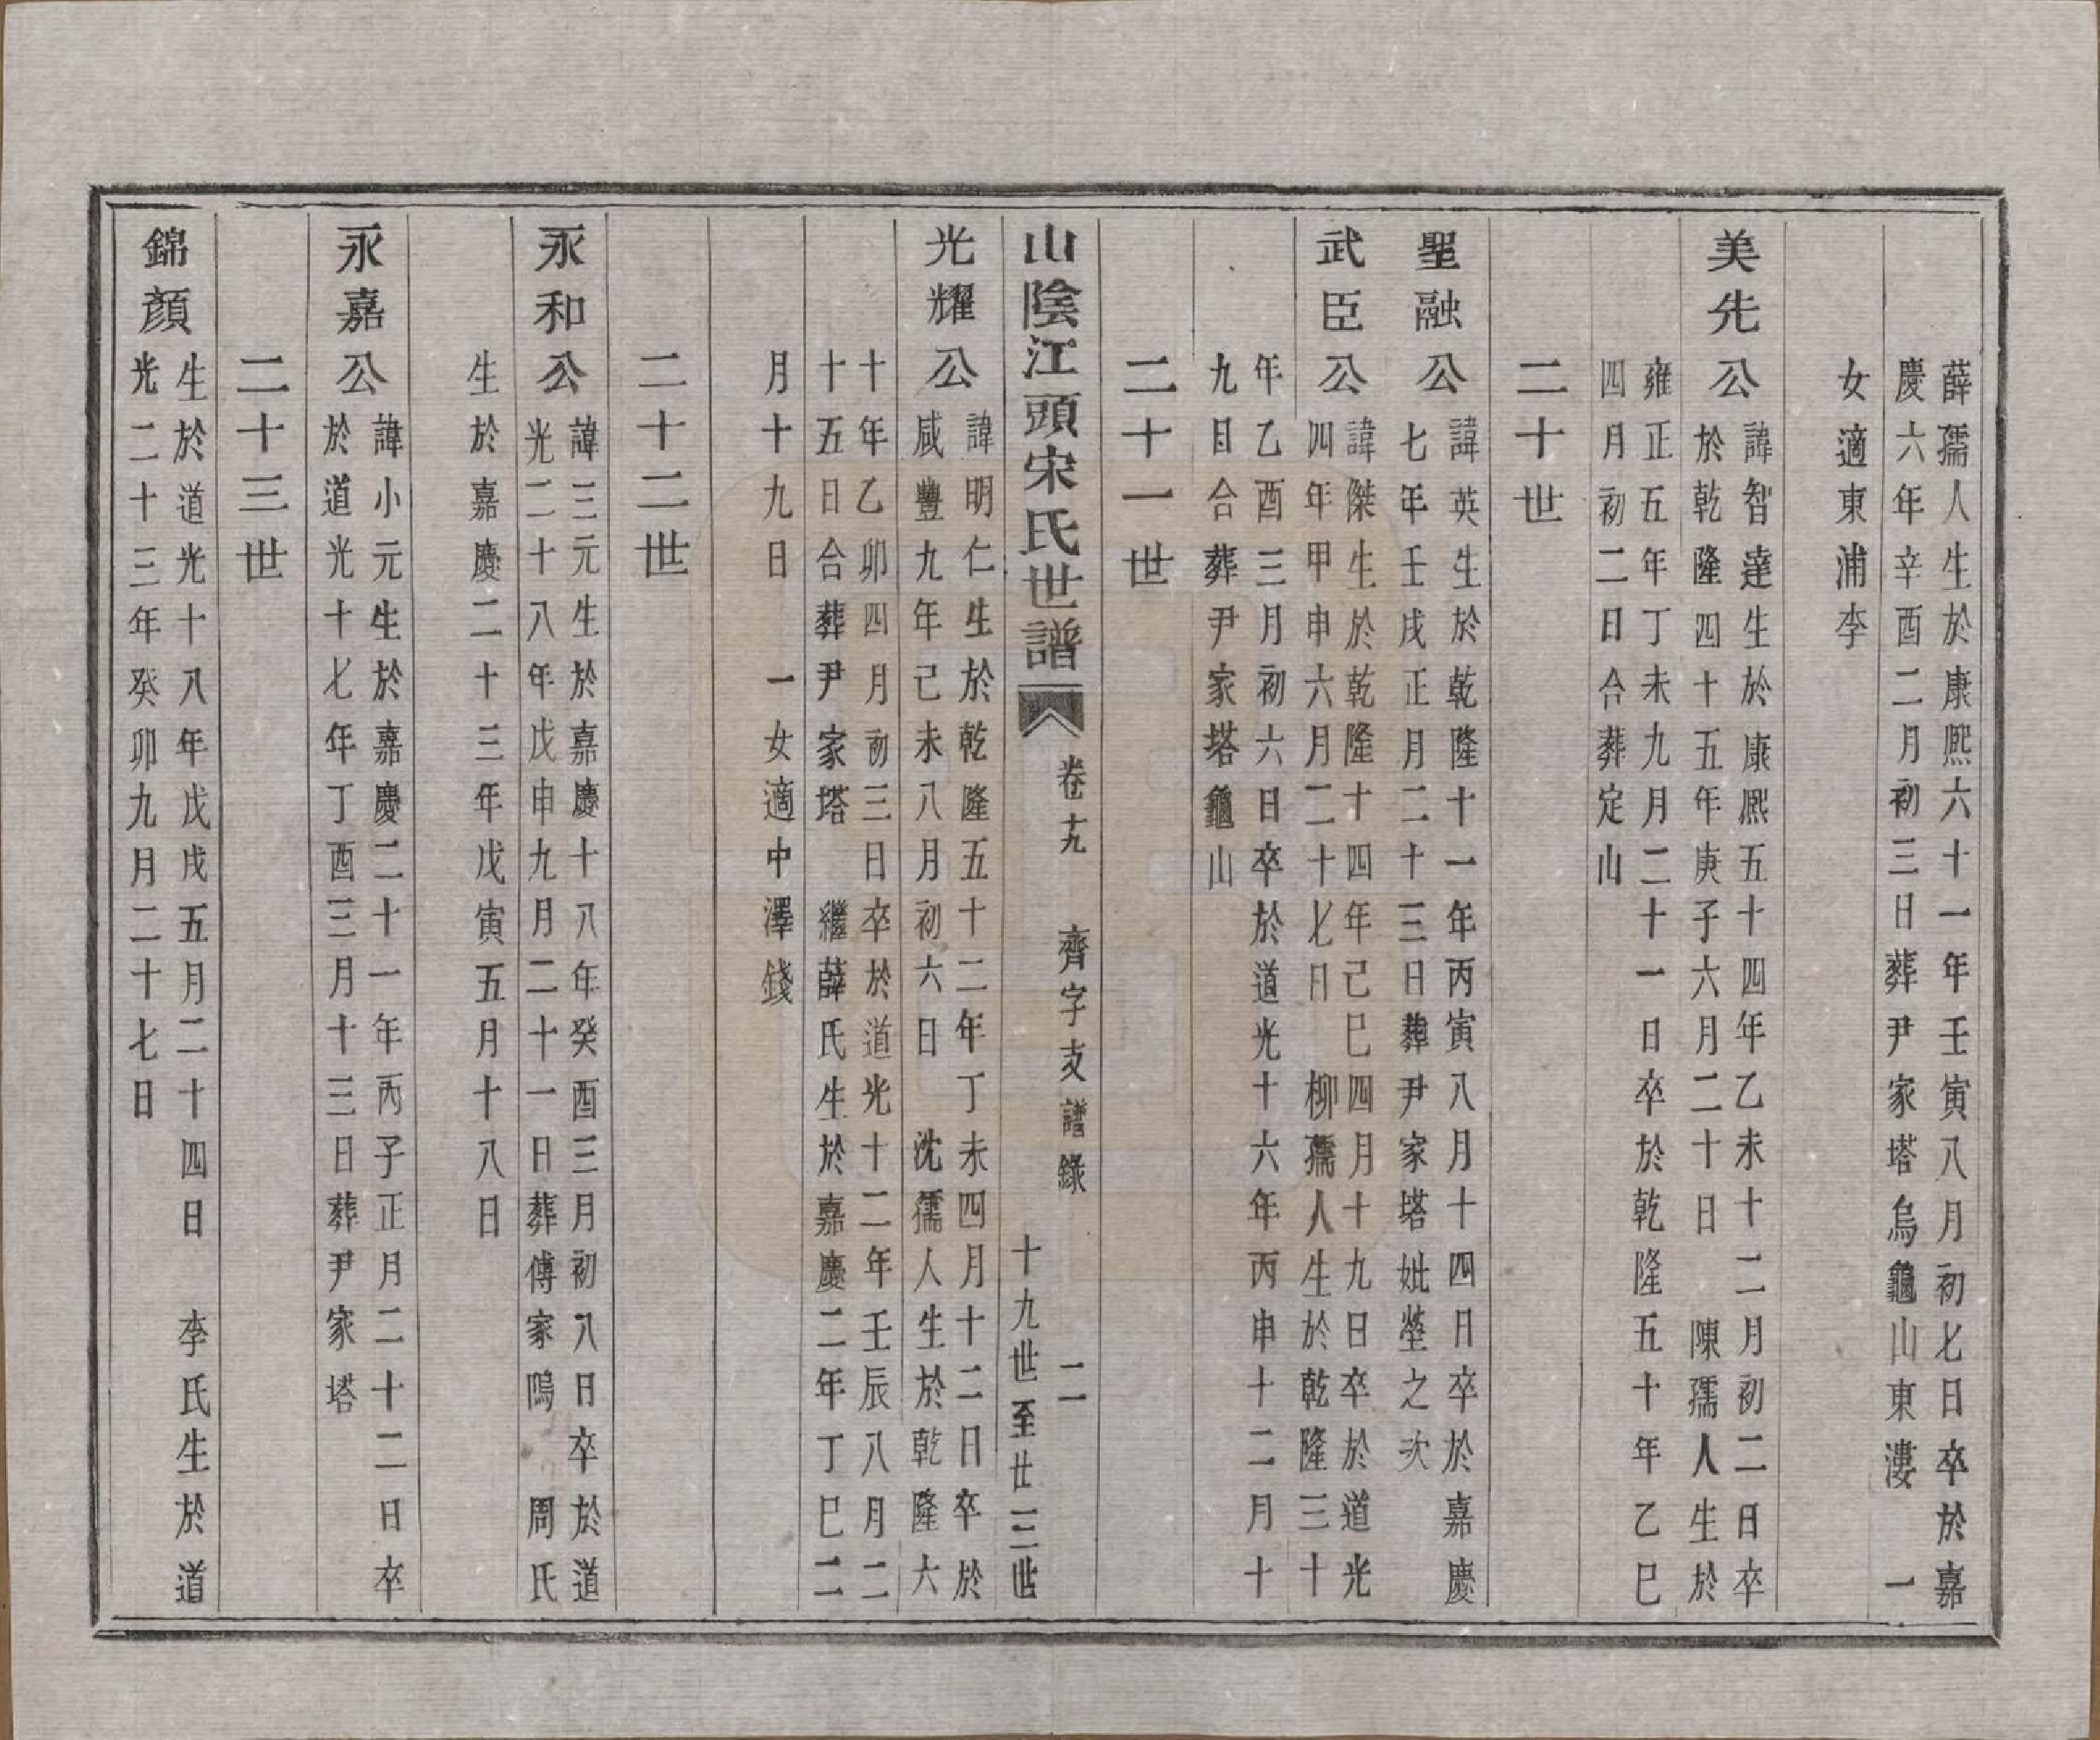 薛孺人生於康熙六十一年壬寅八月初七日卒於嘉
慶六年辛酉二月初三日葬尹家塔烏龜山東漊　一
女適東浦李
美先公
諱智達生於康熙五十四年乙未十二月初二日卒
於乾隆四十五年庚子六月二十日　陳孺人生於
雍正五年丁未九月二十一日卒於乾隆五十年乙巳
四月初二日合葬定山
二十世
聖融公
諱英生於乾隆十一年丙寅八月十四日卒於嘉慶
七年壬戌正月二十三日葬尹家塔妣塋之次
武臣公
諱傑生於乾隆十四年己巳四月十九日卒於道光
四年甲申六月二十七日　柳孺人生於乾隆三十
年乙酉三月初六日卒於道光十六年丙申十二月十
九日合葬尹家塔龜山
二十一世
山陰江頭宋氏世譜
卷十九　齊字支譜錄　二
十九世至廿三世
光耀公
諱明仁生於乾隆五十二年丁未四月十二日卒於
咸豐九年己未八月初六日　沈孺人生於乾隆六
十年乙卯四月初三日卒於道光十二年壬辰八月二
十五日合葬尹家塔　繼薛氏生於嘉慶二年丁巳二
月十九日　一女適中澤錢
二十二世
永和公
諱三元生於嘉慶十八年癸酉三月初八日卒於道
光二十八年戊申九月二十一日葬傅家塢　周氏
生於嘉慶二十三年戊寅五月十八日
永嘉公
諱小元生於嘉慶二十一年丙子正月二十二日卒
於道光十七年丁酉三月十三日葬尹家塔
二十三世
錦顏
生於道光十八年戊戌五月二十四日　李氏生於道
光二十三年癸卯九月二十七日